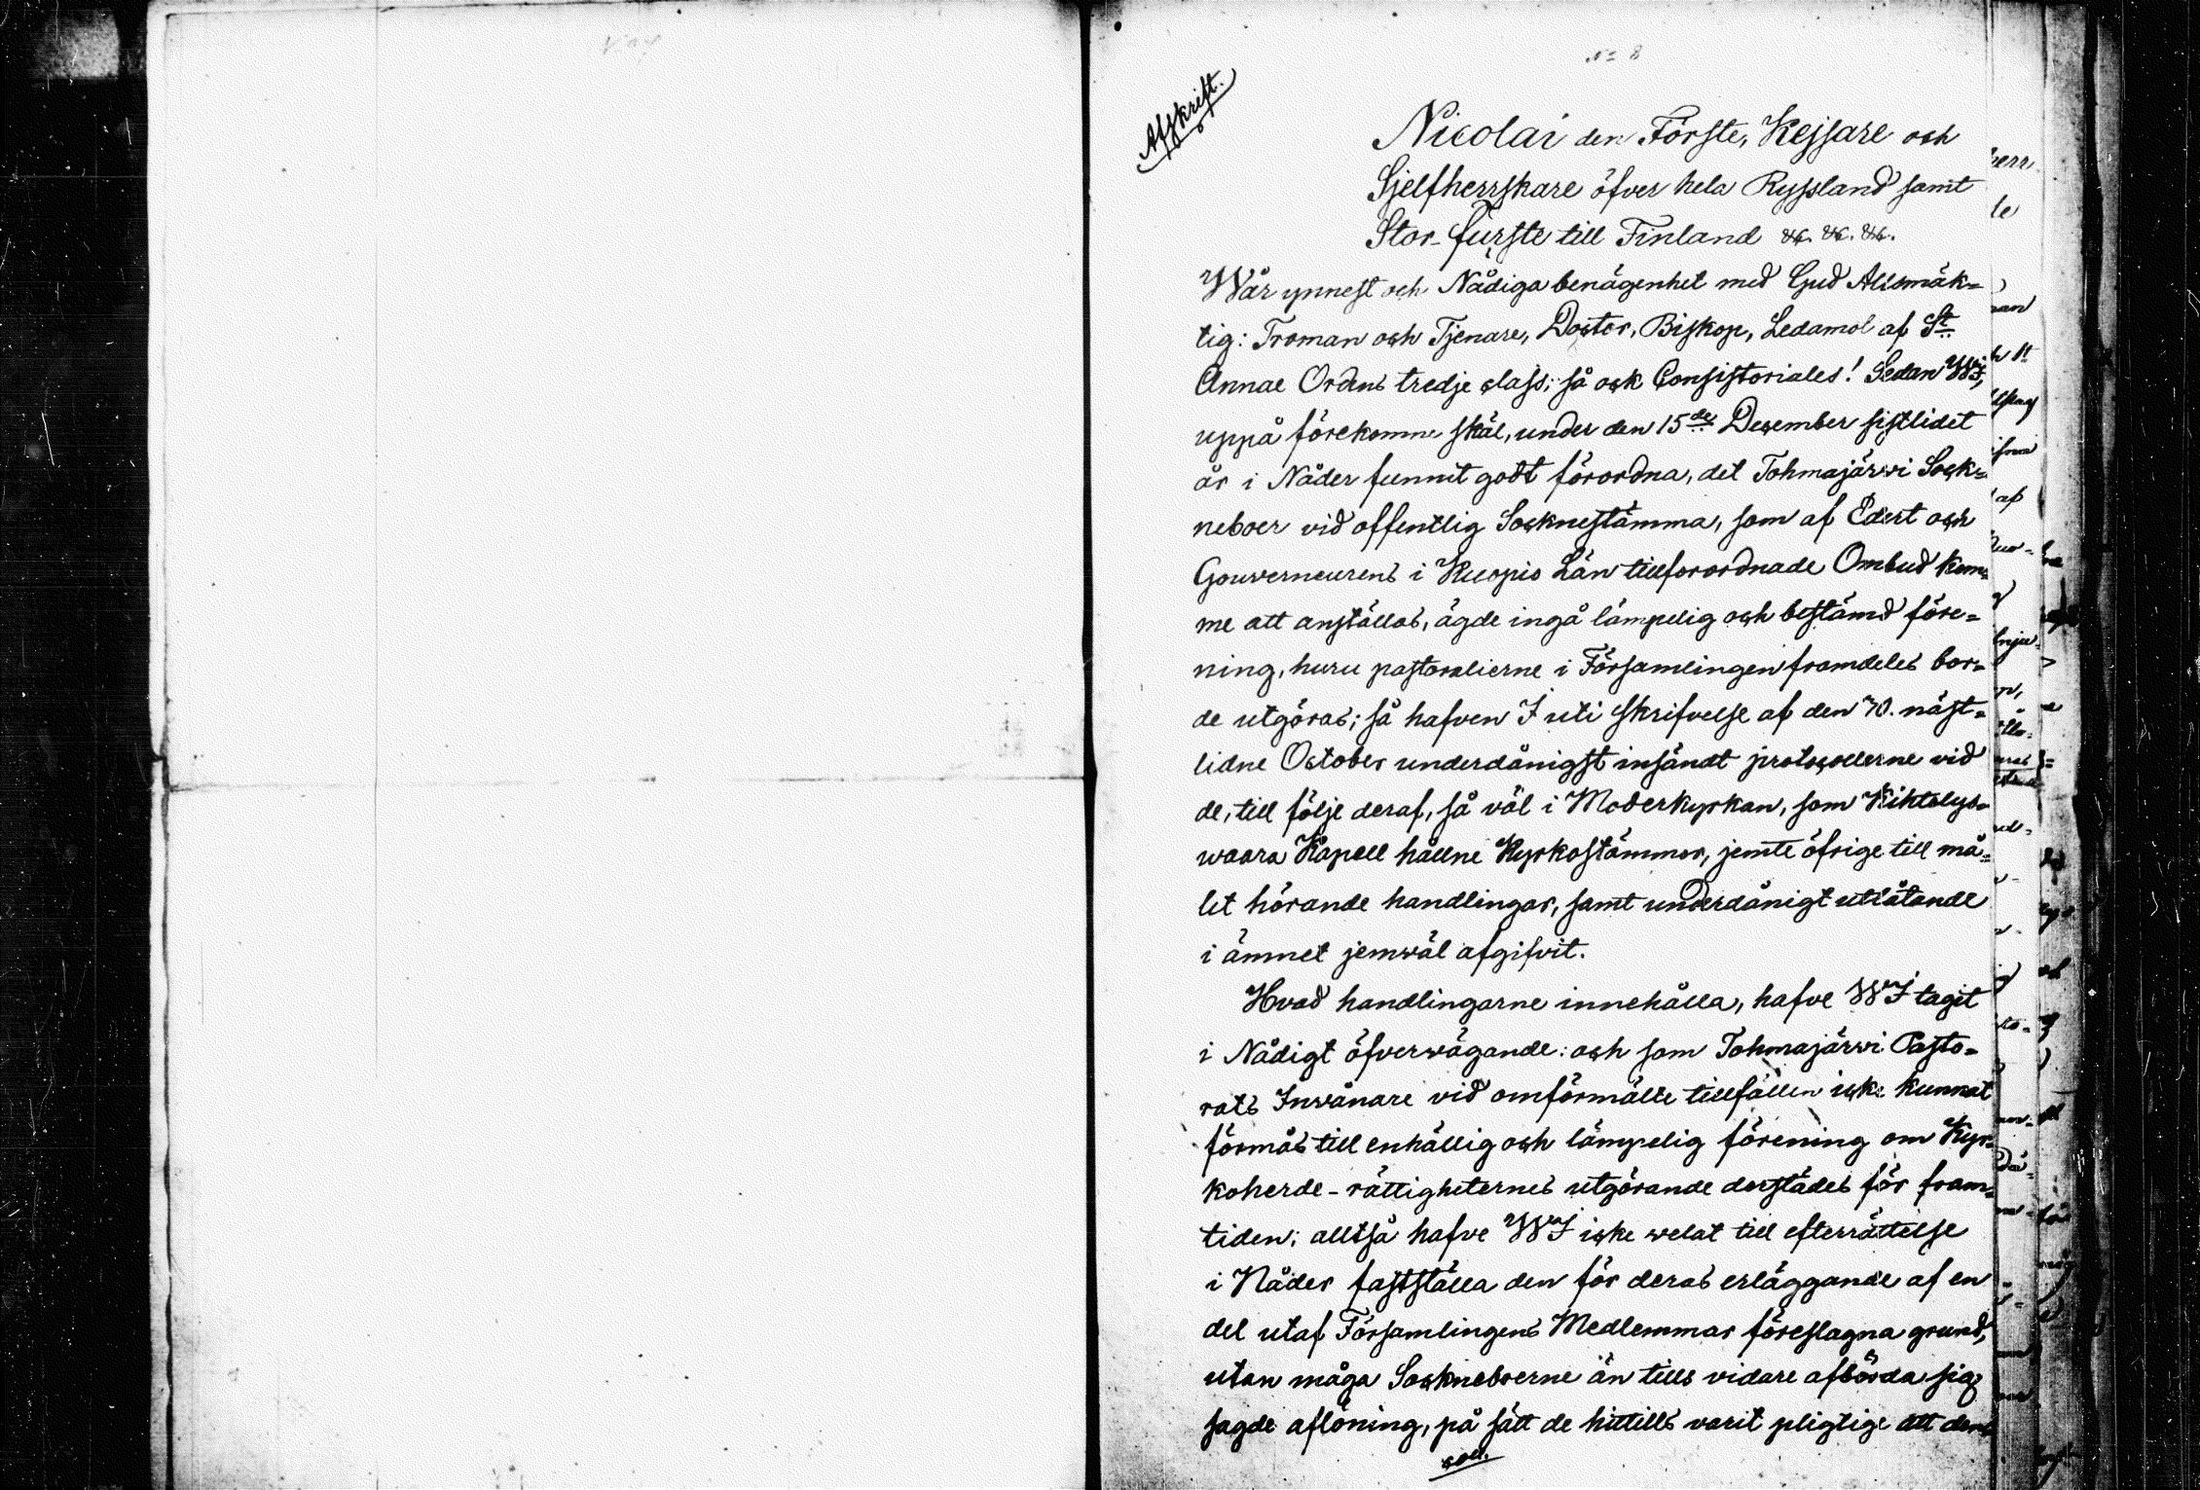 No 8
Afskrift.
Nicolai den Förste, Kejsare och
Sjelfherrskare öfver hela Ryssland samt
Stor-Furste till Finland &c. &c. &c.
Wår ynnest och Nådiga benägenhet med Gud Allsmäk=
tig: Troman och Tjenare, Doctor, Biskop, Ledamot af St
Annae Ordens tredje class; så ock Consistoriales! Sedan WJ,
uppå förekomne skäl, under den 15de December sistlidet
år i Nåder funnit godt förordna, det Tohmajärwi Sock=
neboer vid offentlig Socknestämma, som af Edert och
Gouverneurens i Kuopio Län tillforordnade Ombud kom=
me att anställas, ägde ingå lämpelig och bestämd före=
ning, huru pastoralierne i Församlingen framdeles bor=
de utgöras; så hafven J uti skrifvelse af den 30. näst=
lidne October underdånigst insändt protocollerne vid
de, till följe deraf, så väl i Moderkyrkan, som Kihtelys=
waara Kapell hållne Kyrkostämmor, jemte öfrige till må=
let hörande handlingar, samt underdånigt utlåtande
i ämnet jemwäl afgifvit.
Hvad handlingarne innehålla, hafve WJ tagit
i Nådigt öfverwägande: och som Tohmajärwi Pasto=
rats Inwånare vid omförmälte tillfällen icke kunnat
förmås till enhällig och lämpelig förening om Kyr=
koherde-rättigheternes utgörande derstädes för fram=
tiden; alltså hafve WJ icke welat till efterrättelse
i Nåder fastställa den för deras erläggande af en
del utaf Församlingens Medlemmar föreslagna grund,
utan måga Sockneboerne än tills vidare afbörda sig
sagde aflöning, på sätt de hittills varit pligtige att den
coll.